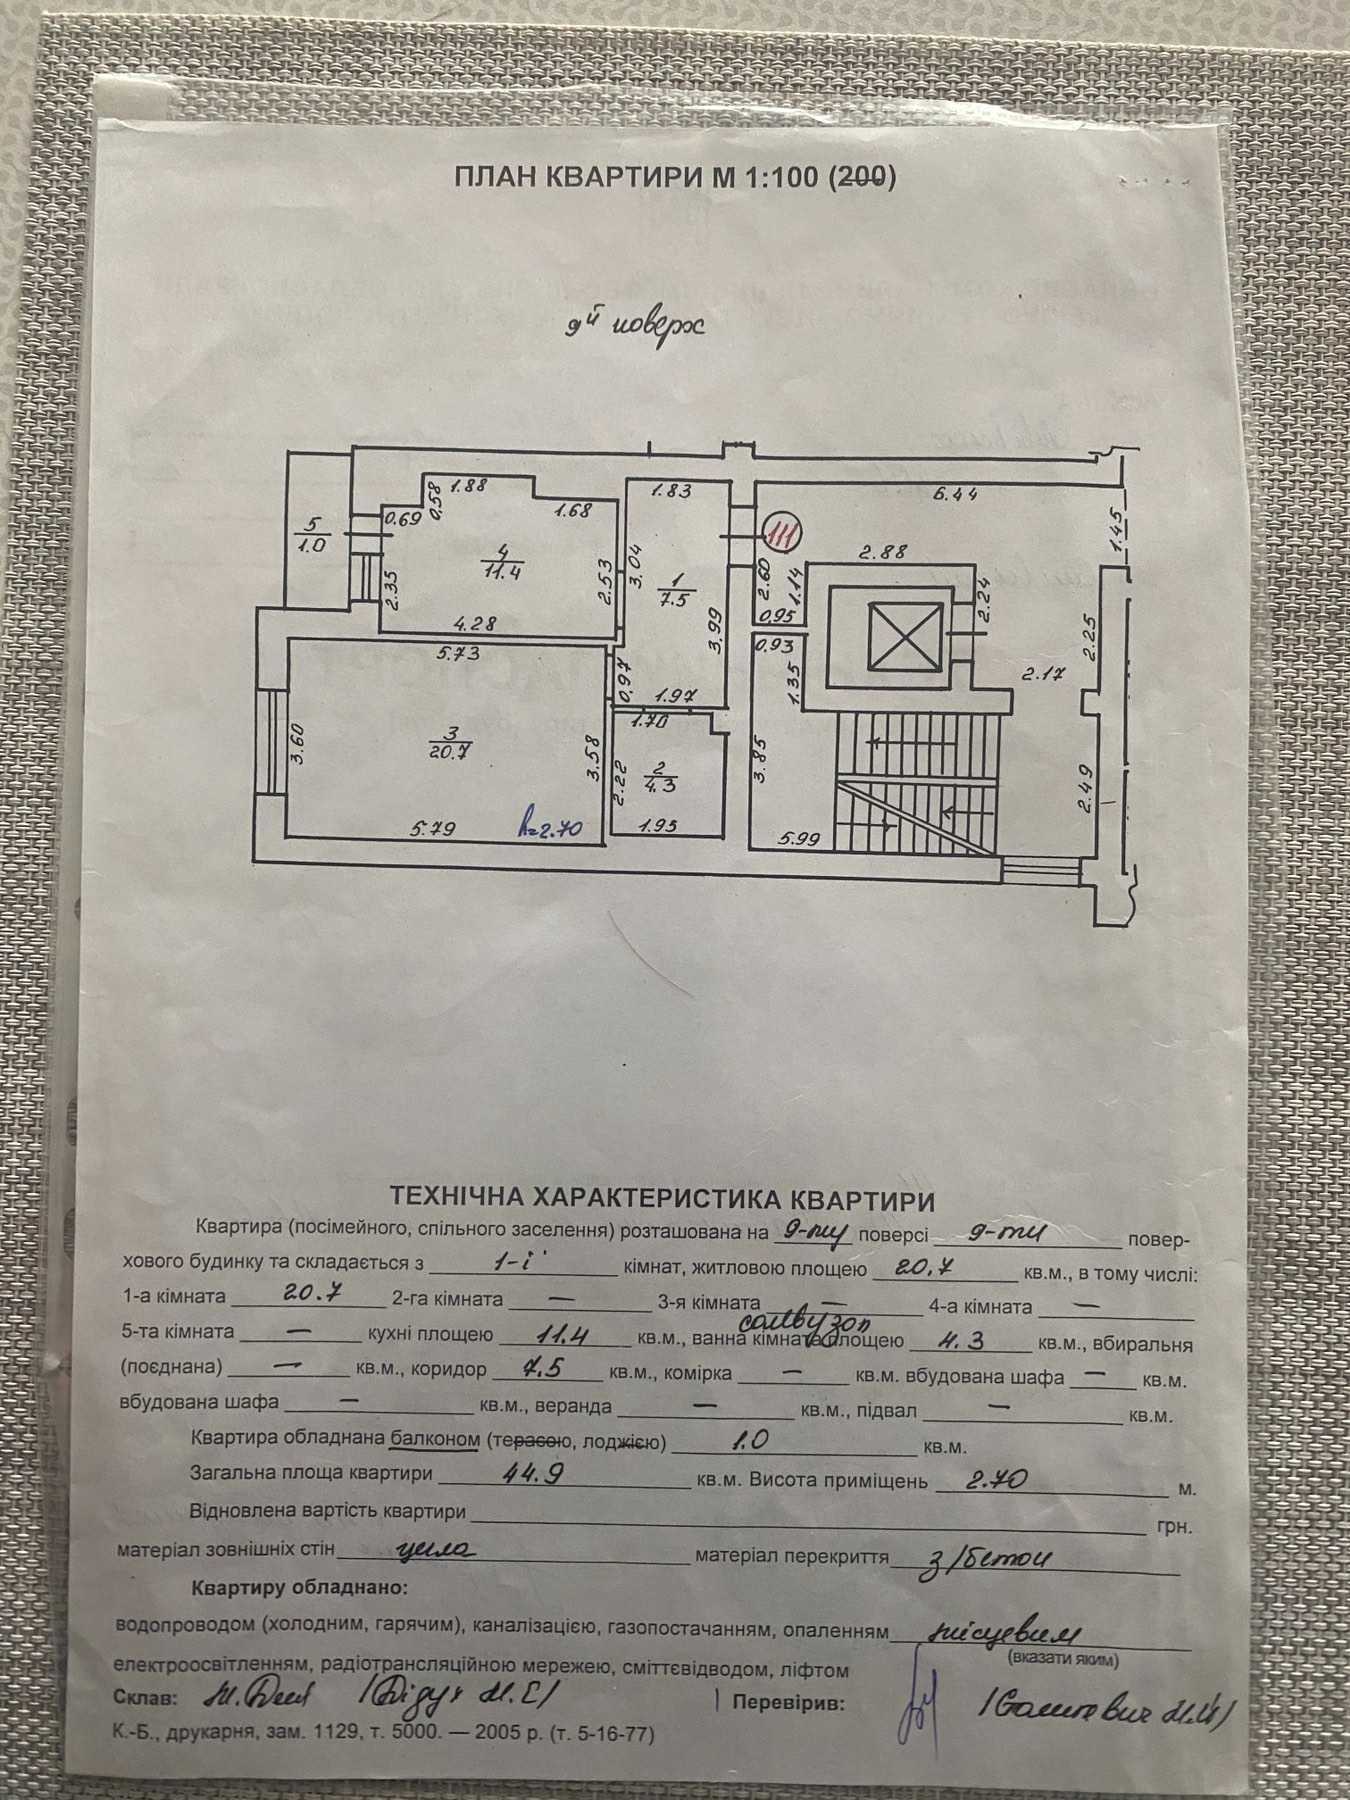 ПЛАН КВАРТИРИ М 1:100 (200)
9й поверх
1.88
0.58
1.68
1.83
6.44
0.69
5
1.0
4
11.4
111
1.45
2.35
2.53
3.04
1
7.5
2.60
1.14
2.88
2.24
4.28
3.99
0.95
2.25
5.73
0.97
0.93
1.35
1.97
2.17
3.60
3
20.7
3.58
1.70
2
4.3
2.22
3.85
2.49
5.79
h=2.70
1.95
5.99
ТЕХНІЧНА ХАРАКТЕРИСТИКА КВАРТИРИ
Квартира (посімейного, спільного заселення) розташована на 9-му поверсі 9-ти повер-
хового будинку та складається з 1-ї кімнат, житловою площею 20,7 кв.м., в тому числі:
1-а кімната 20.7 2-га кімната — 3-я кімната — 4-а кімната —
санвузол
5-та кімната — кухні площею 11.4 кв.м., ванна кімната площею 4.3 кв.м., вбиральня
(поєднана) — кв.м., коридор 7.5 кв.м., комірка — кв.м. вбудована шафа — кв.м.
вбудована шафа — кв.м., веранда — кв.м., підвал — кв.м.
Квартира обладнана балконом (терасою, лоджією) 1.0 кв.м.
Загальна площа квартири 44.9 кв.м. Висота приміщень 2.70 м.
Відновлена вартість квартири грн.
матеріал зовнішніх стін цегла матеріал перекриття з/бетон
Квартиру обладнано:
водопроводом (холодним, гарячим), каналізацією, газопостачанням, опаленням місцевим
(вказати яким)
електроосвітленням, радіотрансляційною мережею, сміттєвідводом, ліфтом
Склав: Перевірив:
К.-Б., друкарня, зам. 1129, т. 5000. — 2005 р. (т. 5-16-77)